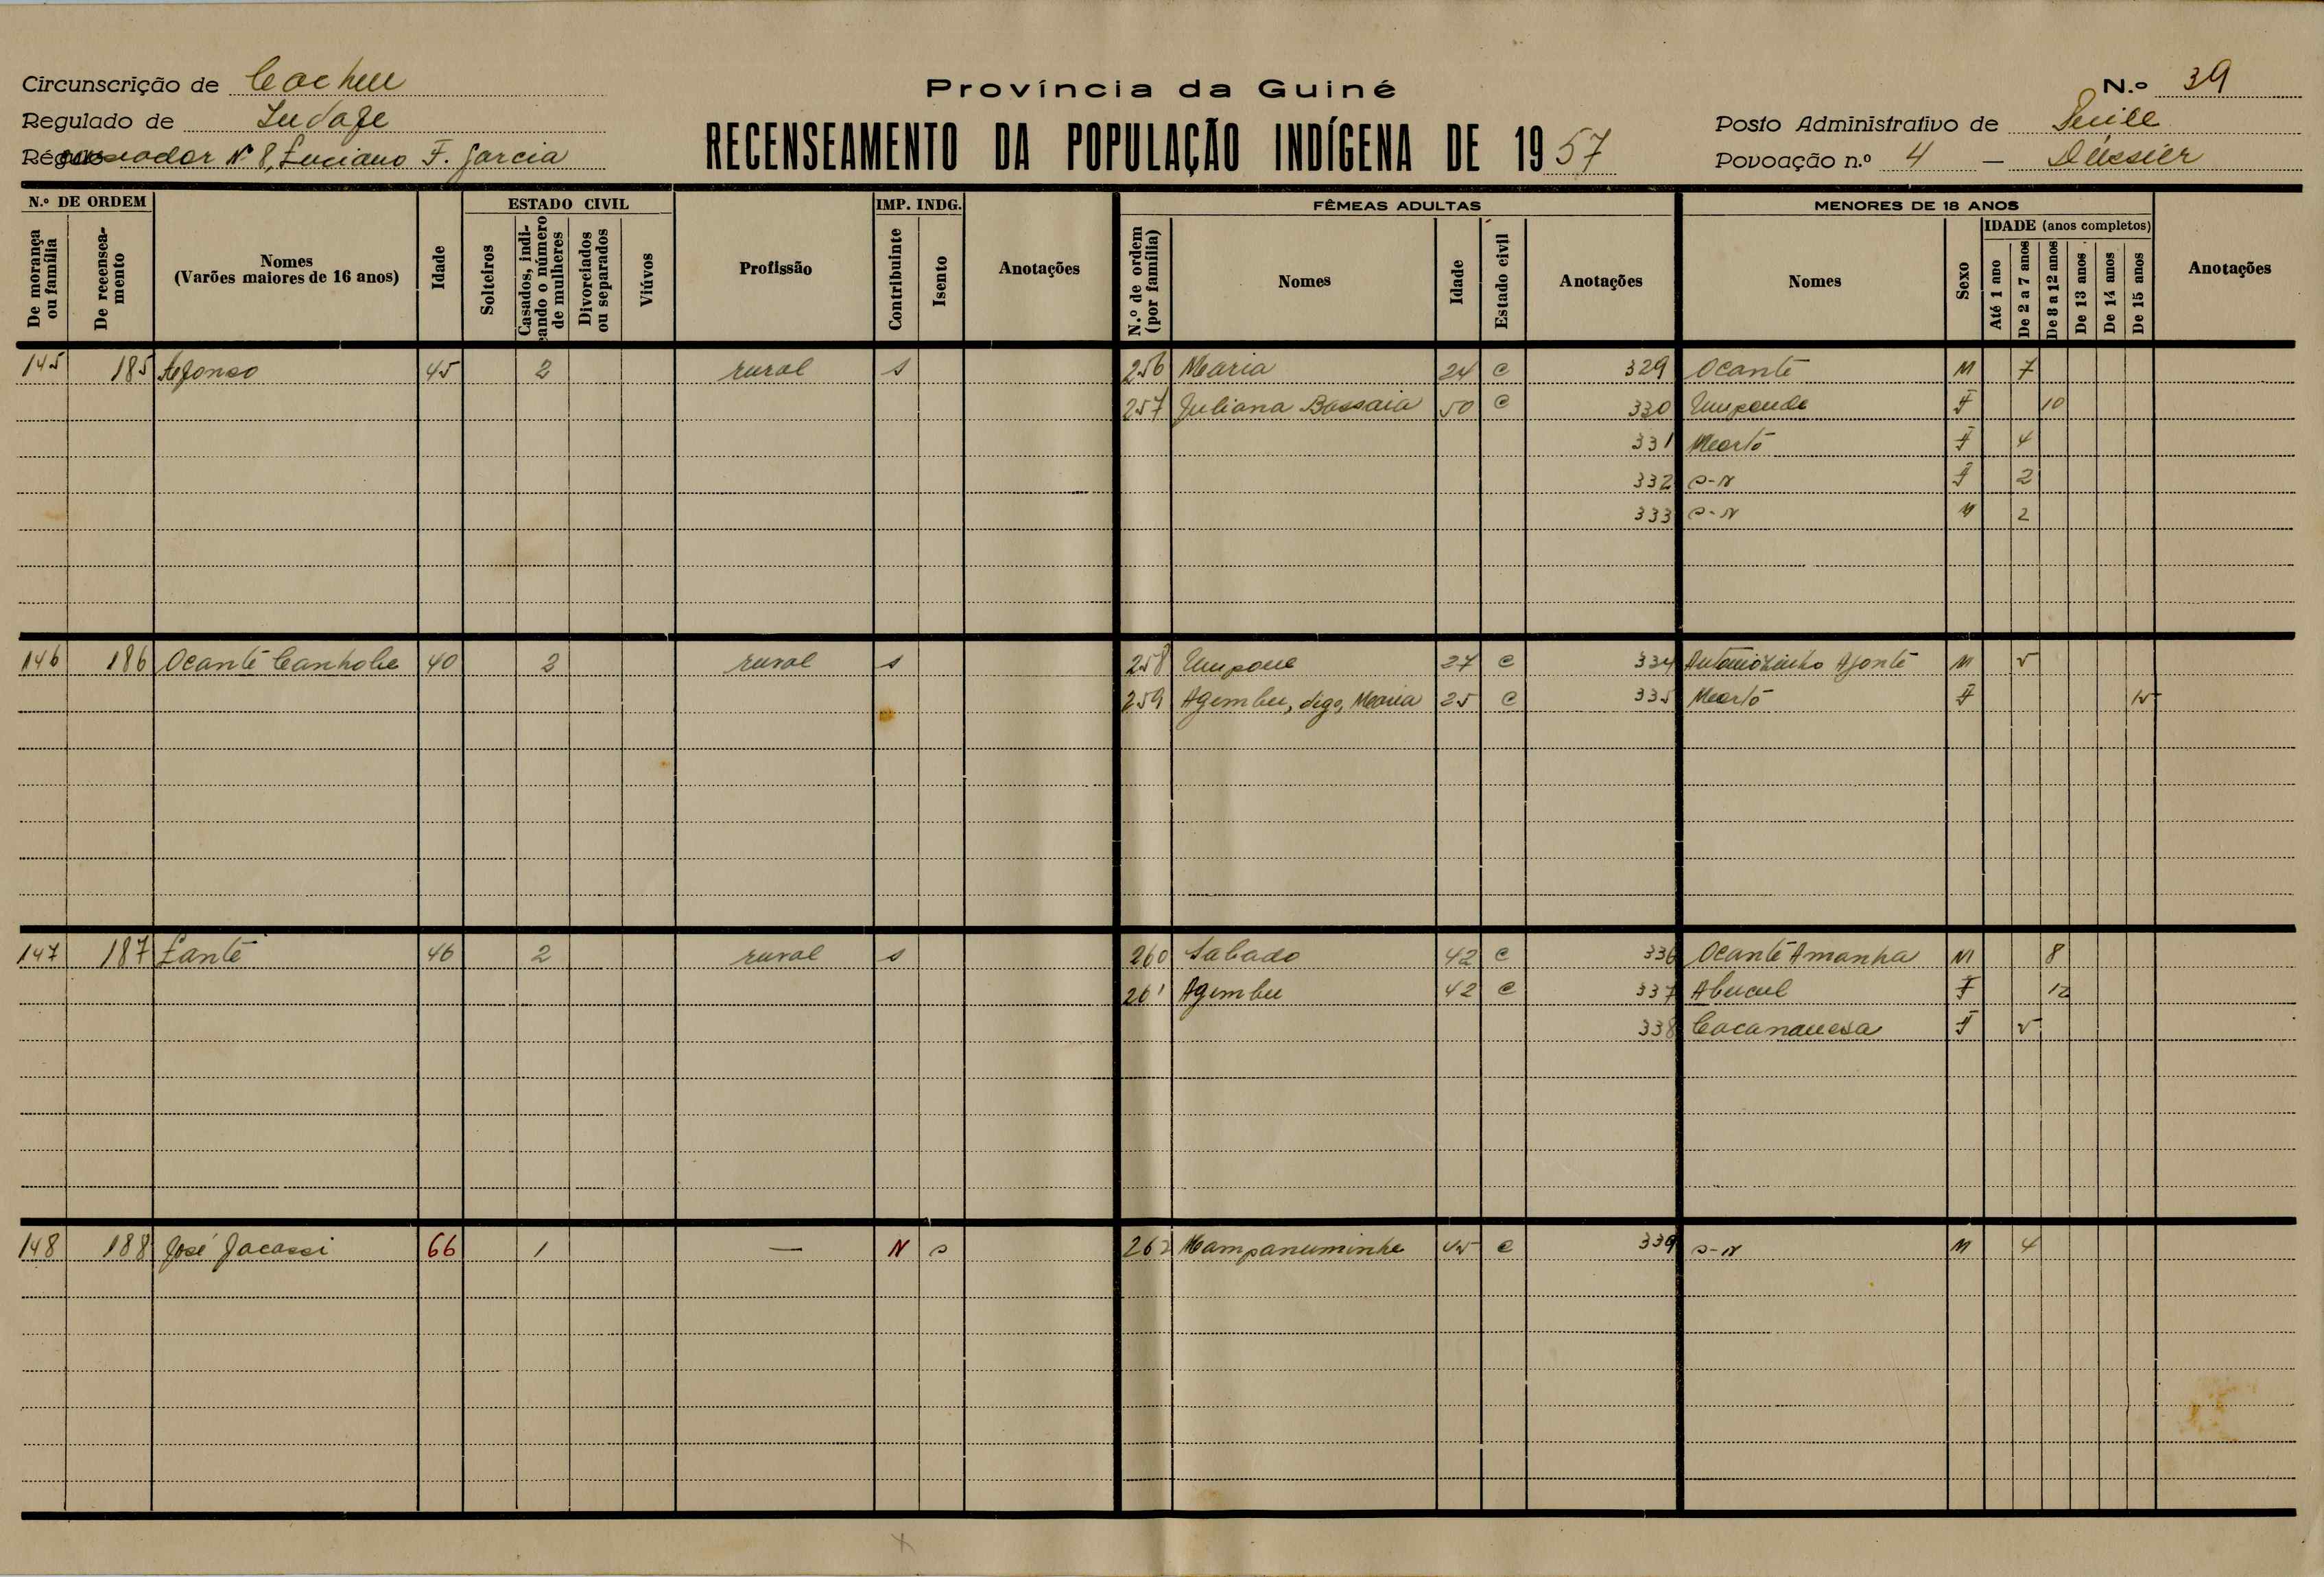 Província da Guiné
N.º 39
Circunscrição de Cacheu
Regulado de
N.º 8, Luciano F. Garcia
RECENSEAMENTO DA POPULAÇÃO INDÍGENA DE 1957
Posto Administrativo de
Povoação n.º 4 —
N.º DE ORDEM
De morança ou família
De recensea-mento
Nomes
(Varões maiores de 16 anos)
Idade
ESTADO CIVIL
Solteiros
Casados, indi-cando o número de mulheres
Divorciados ou separados
Viúvos
Profissão
IMP. INDG.
Contribuinte
Isento
Anotações
FÊMEAS ADULTAS
N.º de ordem (por família)
Nomes
Idade
Estado civil
Anotações
MENORES DE 18 ANOS
Nomes
Sexo
IDADE (anos completos)
Até 1 ano
De 2 a 7 anos
De 8 a 12 anos
De 13 anos
De 14 anos
De 15 anos
Anotações
145 185 Afonso 45 2 rural s 256 Maria 24 C 329 Ocante M 7
257 Juliana Bassaia 50 C 330 F 10
331 F 4
332 S-N F 2
333 S-N M 2
146 186 Ocante Canhobe 40 2 rural s 258 27 C 334 Antoniozinho Afonte M 5
259 Agembu, digo, Maria 25 C 335 F 15
147 187 Lante 46 2 rural s 260 Sabado 42 C 336 Ocante Amanha M 8
261 Agembu 42 C 337 Abucul F 12
338 F 5
148 188 José Jacassi 66 1 — N s 262 Mampanuminhe 45 C 339 S-N M 4